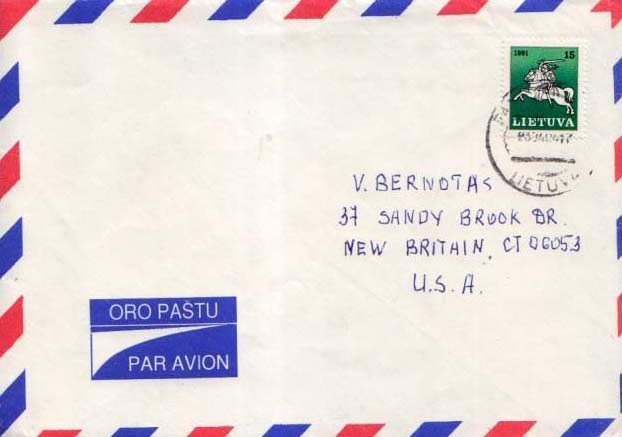 1991 15
LIETUVA
LIETUV
V. BERNOTAS
37 SANDY BROOK DR.
NEW BRITAIN, CT 06053
U.S.A.
ORO PAŠTU
PAR AVION